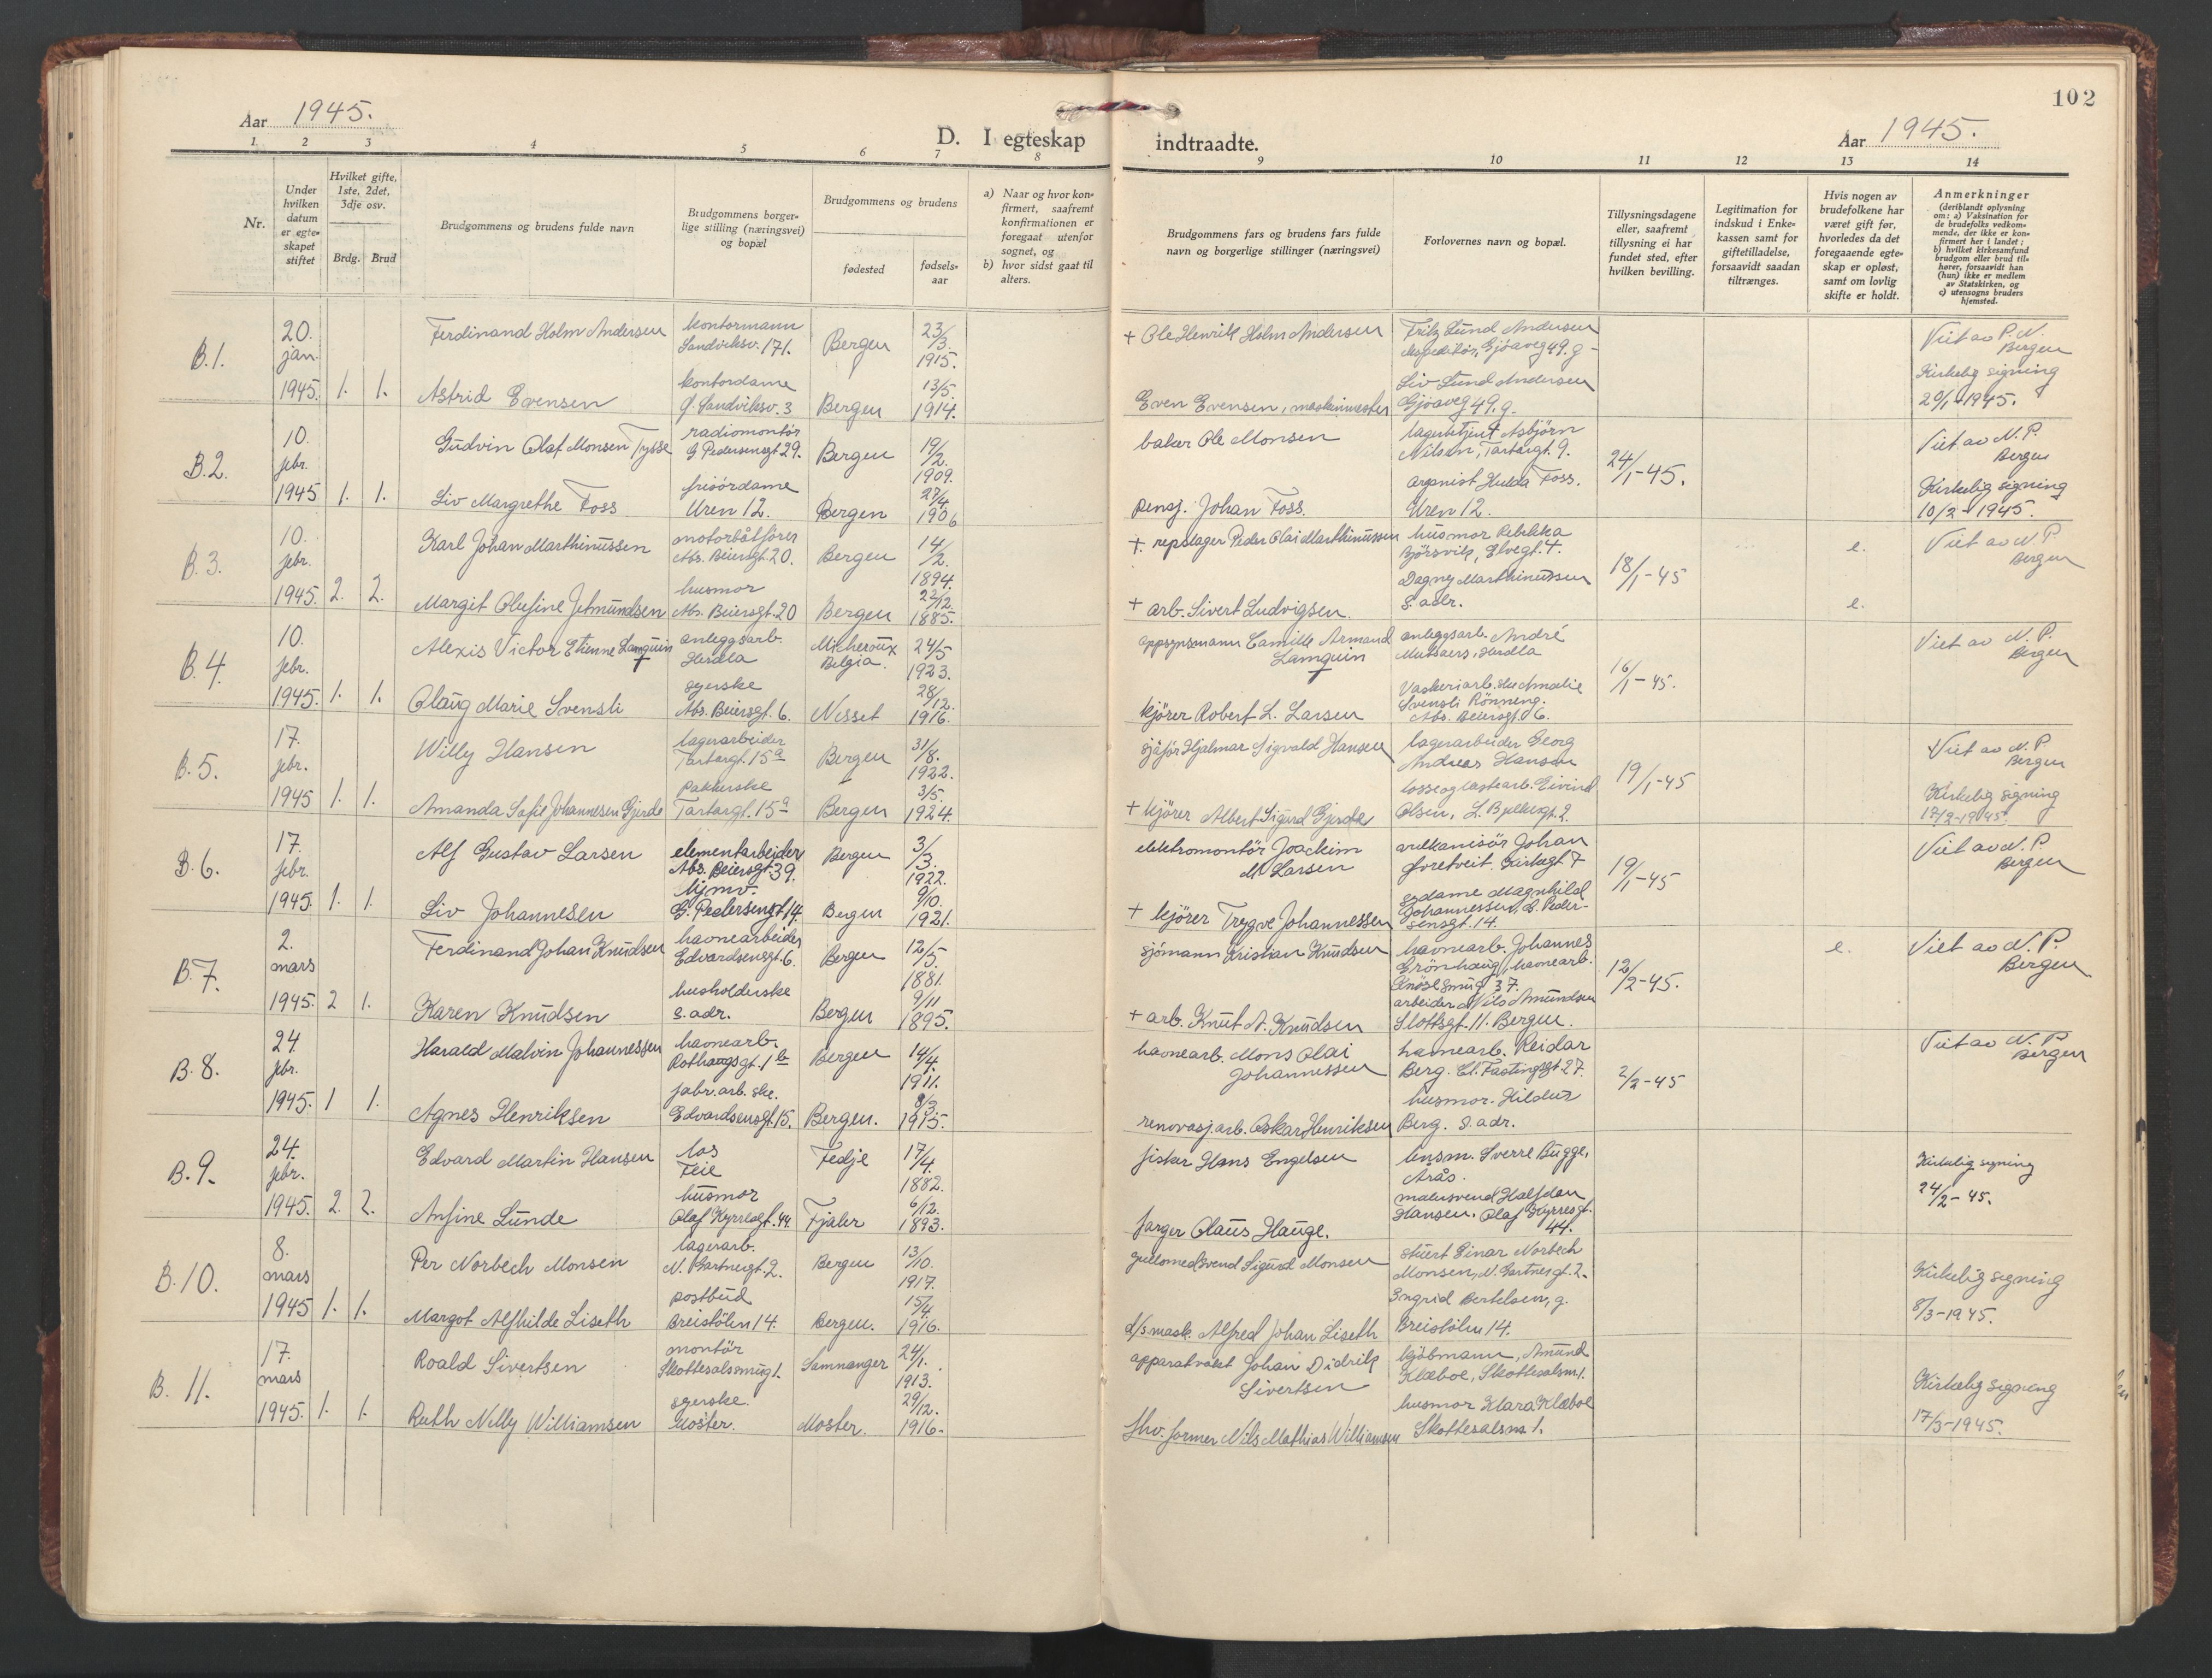 102
Aar 1945.
D. I egteskap indtraadte.
Aar 1945.
1 2 3 4 5 6 7 8 9 10 11 12 13 14
Nr.
Under hvilken datum er egteskapet stiftet
Hvilket gifte, 1ste, 2det, 3dje osv.
Brdg. Brud
Brudgommens og brudens fulde navn
Brudgommens borgerlige stilling (næringsvei) og bopæl
Brudgommens og brudens
fødested
fødselsaar
a) Naar og hvor konfirmert, saafremt konfirmationen er foregaat utenfor sognet, og
b) hvor sidst gaat til alters.
Brudgommens fars og brudens fars fulde navn og borgerlige stillinger (næringsvei)
Forlovernes navn og bopæl.
Tillysningsdagene eller, saafremt tillysning ei har fundet sted, efter hvilken bevilling.
Legitimation for indskud i Enkekassen samt for giftetilladelse, forsaavidt saadan tiltrænges.
Hvis nogen av brudefolkene har været gift før, hvorledes da det foregaaende egteskap er opløst, samt om lovlig skifte er holdt.
Anmerkninger
(deriblandt oplysning om: a) Vaksination for de brudefolks vedkommende, der ikke er konfirmert her i landet; b) hvilket kirkesamfund brudgom eller brud tilhører, forsaavidt han (hun) ikke er medlem av Statskirken, og c) utensogns bruders hjemsted.
B.1.
20. jan. 1945. 1. 1.
Ferdinand Holm Andersen
kontormann Sandviksv. 171.
Bergen
23/3. 1915.
+ Ole Henrik Holm Andersen
Fritz Lund Andersen
ekspeditør, Gjøaveg 49. g-
Viet av P.N. Bergen
Astrid Evensen
kontordame
Ø. Sandviksv. 3
Bergen
13/5. 1914.
Even Evensen, maskinmester
Liv Lund Andersen
Gjøaveg 49. g.
Kirkelig signing
20/1-1945.
B.2.
10. febr. 1945 1. 1.
Gudvin Olaf Monsen Tysse
radiomontör
G Pedersensgt 29.
Bergen
19/2. 1909.
baker Ole Monsen
lagerbetjent Asbjörn
Nilsen, Tartargt. 9.
24/1-45.
Viet av N.P. Bergen
Liv Margrethe Foss
frisördame
Uren 12.
Bergen
27/4 1906
pensj. Johan Foss.
organist Hulda Foss.
Uren 12.
Kirkelig signing
10/2-1945.
B.3.
10. febr. 1945. 2. 2.
Karl Johan Marthinussen
motorbåtförer
Abs. Beiersgt. 20.
Bergen
14/2. 1894.
+. repslager Peder Olai Marthinussen
husmor Rebekka
Björsvik, Elvegt. 4.
18/1-45
e.
Viet av N.P. Bergen
Margit Olufine Jetmundsen
husmor
Abs. Beiersgt. 20
Bergen
22/12. 1885.
+ arb. Sivert Ludvigsen.
Dagny Marthinussen
s. adr.
e.
B.4.
10. febr. 1945. 1. 1.
Alexis Victor Etienne Lamquin
anleggsarb.
Herdla
Micheroux
Belgia.
24/5 1923.
oppsynsmann Camille Armand
Lamquin
anleggsarb. André
Mutsaers, Herdla
16/1-45.
Viet av N.P. Bergen
Olaug Marie Svensli
syerske
Abs. Beiersgt. 6.
Nesset
28/12. 1916.
kjörer Robert L. Larsen
Vaskeriarb.ske Amalie
Svensli Rönning.
Abs. Beiersgt. 6.
B.5.
17. febr. 1945 1. 1.
Willy Hansen
lagerarbeider
Tartargt. 15a
Bergen
31/8. 1922.
sjåför Hjalmar Sigvald Hansen
lagerarbeider Georg
Andreas Hansen
19/1-45
Viet av N.P. Bergen
Amanda Sofie Johannesen Gjerde
pakkerske
Tartargt. 15a
Bergen
3/5. 1924.
+ kjörer Albert Sigurd Gjerde
losse og lastearb. Eivind
Olsen,
Kirkelig signing
17/2-1945.
B.6.
17. febr. 1945. 1. 1.
Alf Gustav Larsen
elementarbeider
Abs. Beiersgt. 39.
Bergen
3/3. 1922.
elektromontör Joackim
M Larsen
vulkanisör Johan
19/1-45
Viet av N.P. Bergen
Liv Johannesen
hjmv.
G. Pedersensgt 14.
Bergen
9/10. 1921.
+ kjörer Trygve Johannessen
sydame Magnhild
Johannessen, G. Pedersensgt. 14.
B.7.
2. mars 1945. 2 1.
Ferdinand Johan Knudsen
havnearbeider
Edvardsensgt. 6.
Bergen
12/5. 1881.
sjömann Kristian Knudsen
havnearb. Johannes
Grönhaug, havnearb.
37.
12/2-45.
e.
Viet av N.P. Bergen
Karen Knudsen
husholderske
s. adr.
Bergen
9/11 1895.
+ arb. Knut A. Knudsen
arbeider Nils Amundsen
Slottsgt. 11. Bergen.
B.8.
24. febr. 1945. 1 1.
Harald Malvin Johannessen
havnearb.
Rothaugsgt. 1b
Bergen
14/4. 1911.
havnearb. Mons Olai
Johannessen
havnearb. Reidar
Berg. Cl. Fastingsgt. 27.
2/2-45
Viet av N.P. Bergen
Agnes Henriksen
fabr. arb. ske.
Edvardsensgt. 15.
Bergen.
8/3. 1915.
renovasj.arb. Oskar Henriksen
husmor. Hildur
Berg. s. adr.
B.9.
24. febr. 1945. 2. 2.
Edvard Martin Hansen
los
Feie
Fedje
17/4. 1882.
fisker Hans Engelsen
lensm. Sverre Bugge,
Årås.
Kirkelig signing
24/2-45.
Anfine Lunde
husmor
Olaf Kyrresgt. 44
Fjaler
6/12. 1893.
farger Olaus Hauge.
malersvend Halfdan
Hansen. Olaf Kyrresgt. 44.
B.10.
8. mars 1945 1. 1.
Per Norbech Monsen
lagerarb.
N. Gartnergt. 2.
Bergen
13/10. 1917.
gullsmedsvend Sigurd Monsen
stuert Einar Norbech
Monsen, N. Gartnergt. 2.
Kirkelig signing
8/3-1945.
Margot Alfhilde Liseth
postbud
Breistölen 14.
Bergen.
15/4. 1916.
d/s mask. Alfred Johan Liseth
Ingrid Bertelsen, g.
Breistölen 14.
B. 11.
17. mars 1945. 1. 1.
Roald Sivertsen
montör
Skottesalssmug 1.
Samnanger
24/1. 1913.
apparatvakt Johan Didrik
Sivertsen
kjöbmann, Amund
Klæboe, Skottesalsm. 1.
Kirkelig signing
17/3-1945.
Ruth Nelly Williamsen
syerske.
Moster.
Moster.
29/12. 1916.
Hv. former Nils Mathias Williamsen
husmor Klara Klæboe
Skottesalsm. 1.